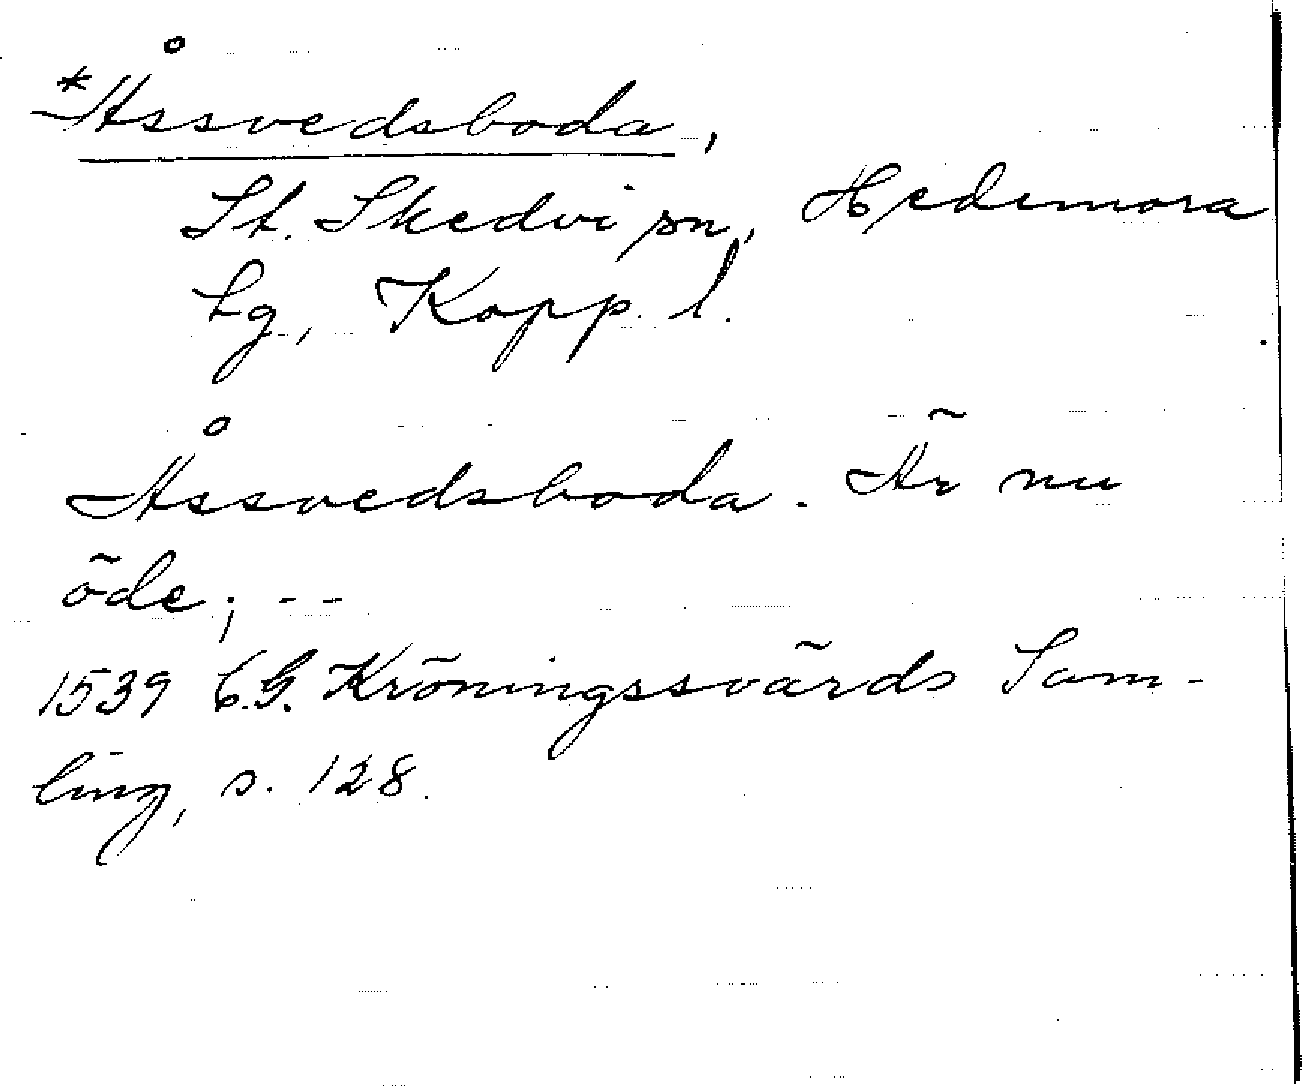 *Åssvedsboda,
St. Skedvi sn, Hedemora
tg, Kopp. l.
Åssvedsboda. Är nu
öde; --
1539 C.G. Kröningssvärds Sam-
ling, s. 128.